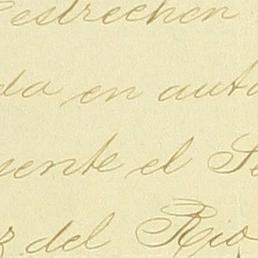 estrechen
da en auto
sente el Se
z del Rio